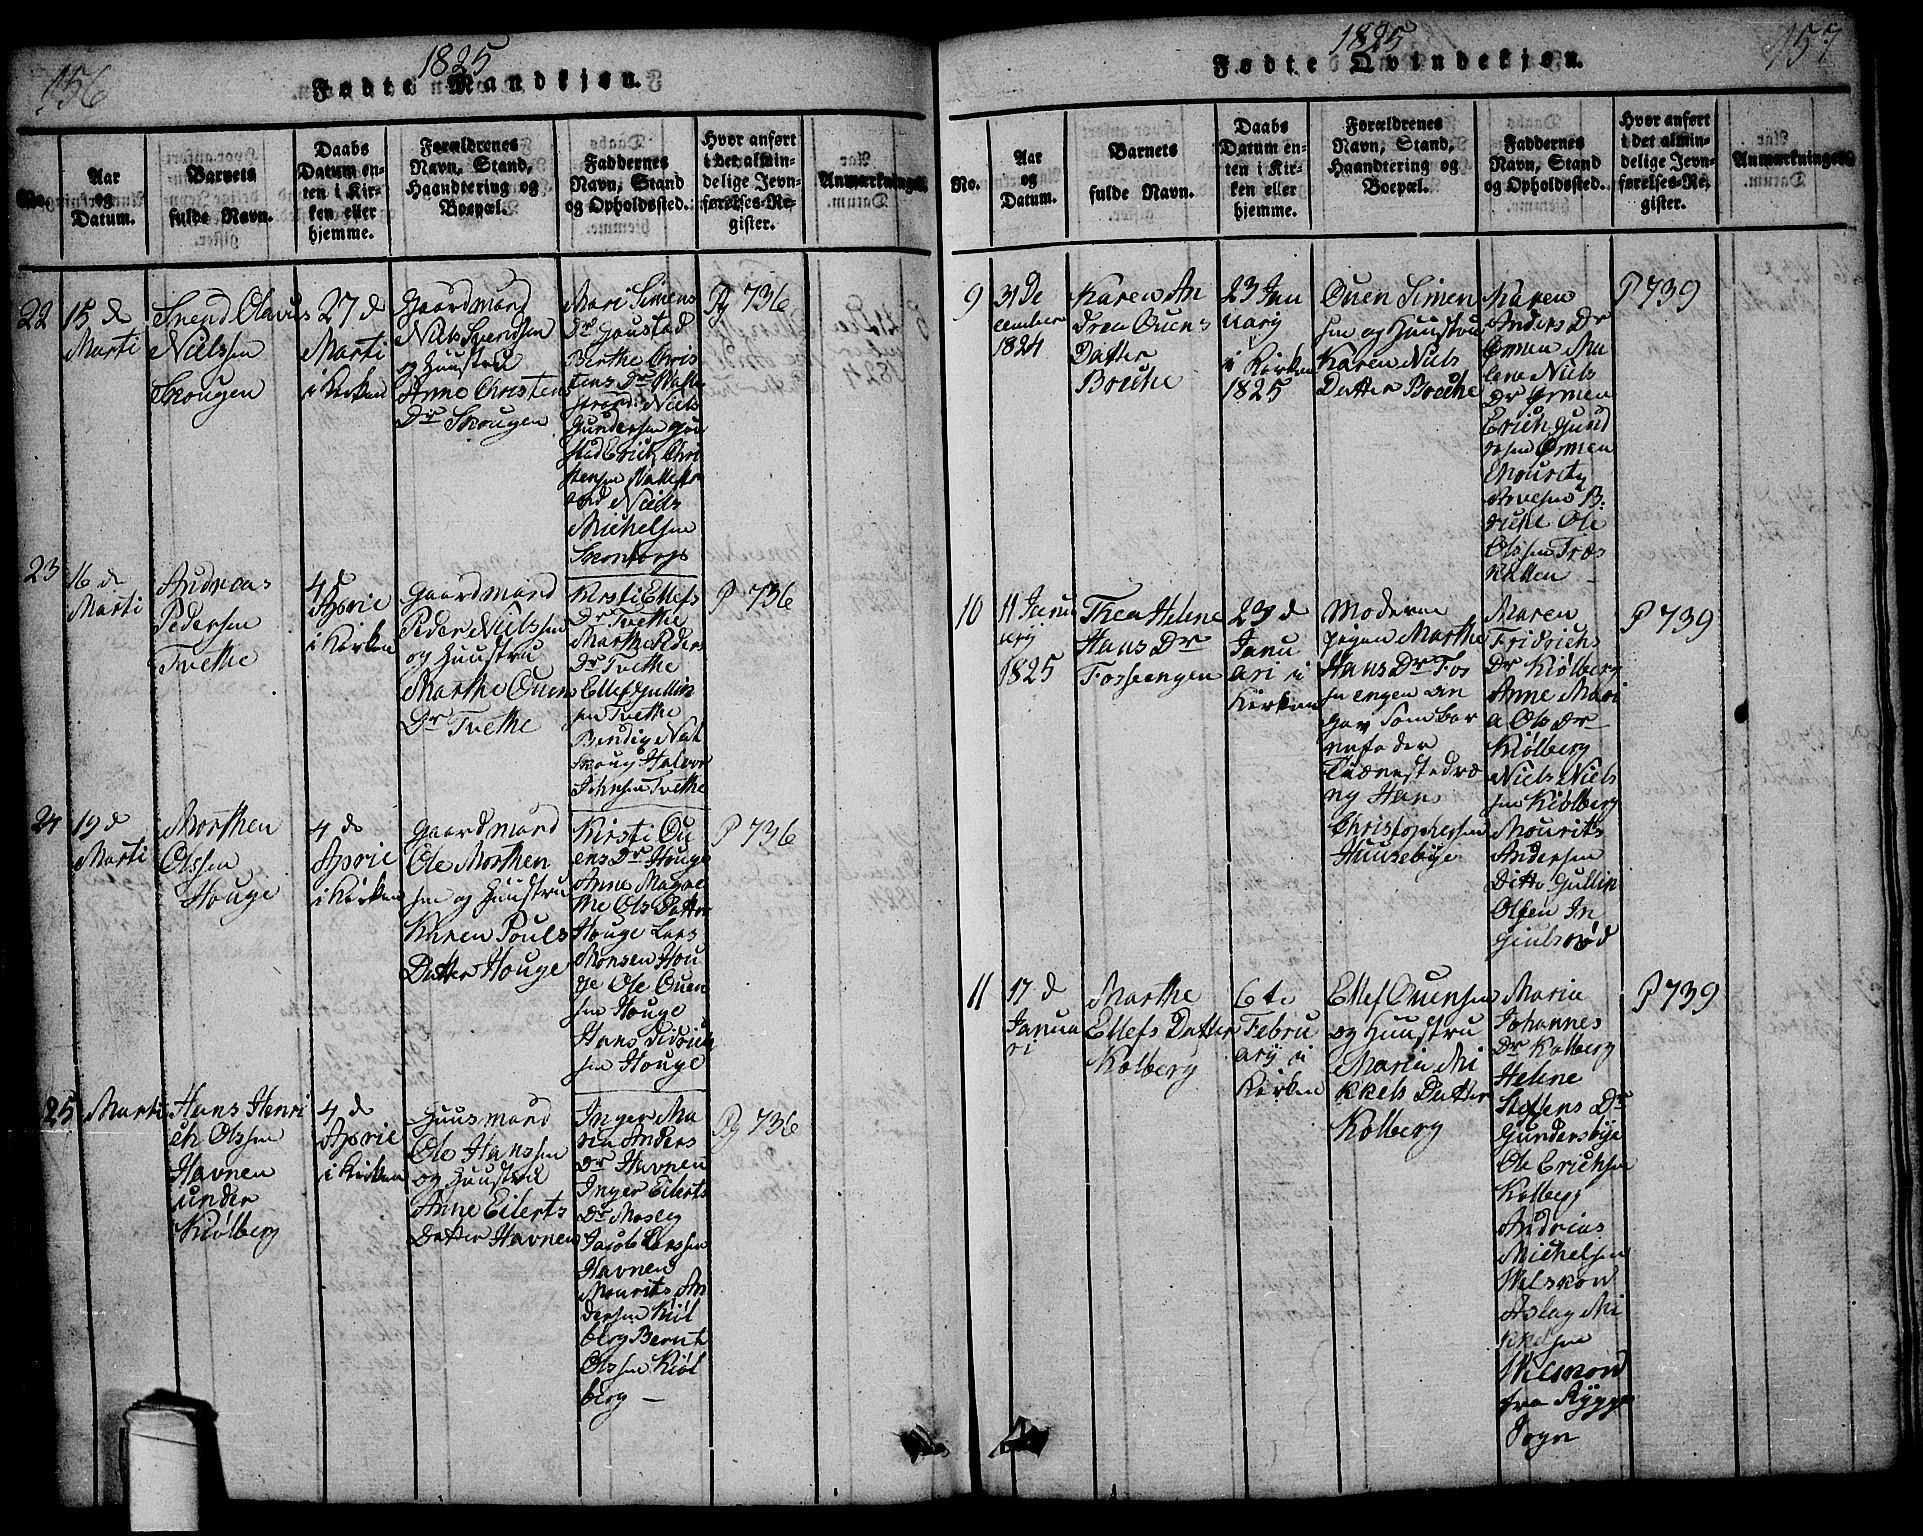 156
1825
Fødte Mandkjøn.
No.
Aar
og
Datum.
Barnets
fulde Navn.
Daabs
Datum en-
ten i Kir-
ken eller
hjemme.
Forældrenes
Navn, Stand,
Haandtering og
Boepæl.
Faddernes
Navn, Stand
og Opholdssted.
Hvor anført
i det almin-
delige Jevn-
førelses-Re-
gister.
Anmærkninger.
22
15 de
Marti
Svend Olavus
Nielssen
Skougen
27 de
Marti
i Kirken
Gaardmand
Niels Svendsen
og Huustru
Anne Christens
Dr Skougen
Mari Simens
Dr Goustad
Berthe Chris
tens Dr Walle
strand Niels
Gundersen Gou
stad Erich Chri
stensen Wallestr
and Niels
Michelsen
Skontorp
Pg 736
23
16 de
Marti
Andreas
Pedersen
Tvethe
4 de
Aprie
i Kirken
Gaardmand
Peder Nielssen
og Huustru
Marthe Ouens
Dr Tvethe
Kirsti Ellefs
Dr Tvethe
Marthe Peders
Dr Tvethe
Ellef Gullin
sen Tvethe
Bendig Nat
skoug Halvor
Johnsen Tvethe
P 736
24
19 de
Marti
Morthen
Olssen
Houge
4 de
Aprie
i Kirken
Gaardmand
Ole Morthen
sen og Huustru
Karen Pouls
Datter Houge
Kirsti Ou
ens Dr Houge
Anne Magre
the Ols Datter
Houge Lars
Monsen Hou
ge Ole Ouen
sen Houge
Hans Didrich
sen Houge
P 736
25
Marti
Hans Henri
ch Olssen
Havnen
under
Kiølberg
4 de
Aprie
i Kirken
Huusmand
Ole Hanssen
og Huustru
Anne Eilerts
Datter Havnen
Inger Ma
ria Anders
Dr Havnen
Inger Eilerts
Dr Moseg
Jacob Larssen
Havnen
Mourits An
dersen Kiøl
berg Bernt
Olssen Kiøl
berg —
Pg 736
157
1825
Fødte Qvindekjøn.
No.
Aar
og
Datum.
Barnets
fulde Navn.
Daabs
Datum en-
ten i Kir-
ken eller
hjemme.
Forældrenes
Navn, Stand,
Haandtering og
Boepæl.
Faddernes
Navn, Stand
og Opholdssted.
Hvor anført
i det almin-
delige Jevn-
førelses-Re-
gister.
Anmærkninger.
9
31 De
cember
1824
Karen An
drea Ouens
Datter
Boche
23 Jan
uarij
i Kirken
1825
Ouen Simen
sen og Huustru
Karen Niels
Datter Boche
Karen
Anders Dr
Ormen Ma
lene Niels
Dr Ormen
Erich Gund
ersen Ormen
Mouritz
Arvesen B.
Ole
Olssen Træs
kelten
P 739
10
11 Janu
arij
1825
Thea Helene
Hans Dr
Fossengen
23 de
Janu
ari i
Kirken
Moderen
Pigen Marthe
Hans Dr Fos
sengen an
gav som bar
nefader
Tienestedræ
ng Hans
Christophersen
Huusebye
Maren
Fridrichs
Dr Kiølberg
Anne Mari
a Ols Dr
Kiølberg
Niels Niels
sen Kiølberg
Mourits
Andersen
Ditto Gullin
Olsen In
giulsrød
P 739
11
17 de
Janua
ri
Marthe
Ellefs Datter
Kolberg
6te
Febru
arij i
Kirken
Ellef Ouensen
og Huustru
Maria Mi
kkels Datter
Kolberg
Maria
Johannes
Dr Kolberg
Helene
Stephens Dr
Gundersbye
Ole Erichsen
Kolberg
Andrias
Michelsen
Welskov
Aslag Mi
kkelsen
Welskov
fra Rygge
Sogn
P 739